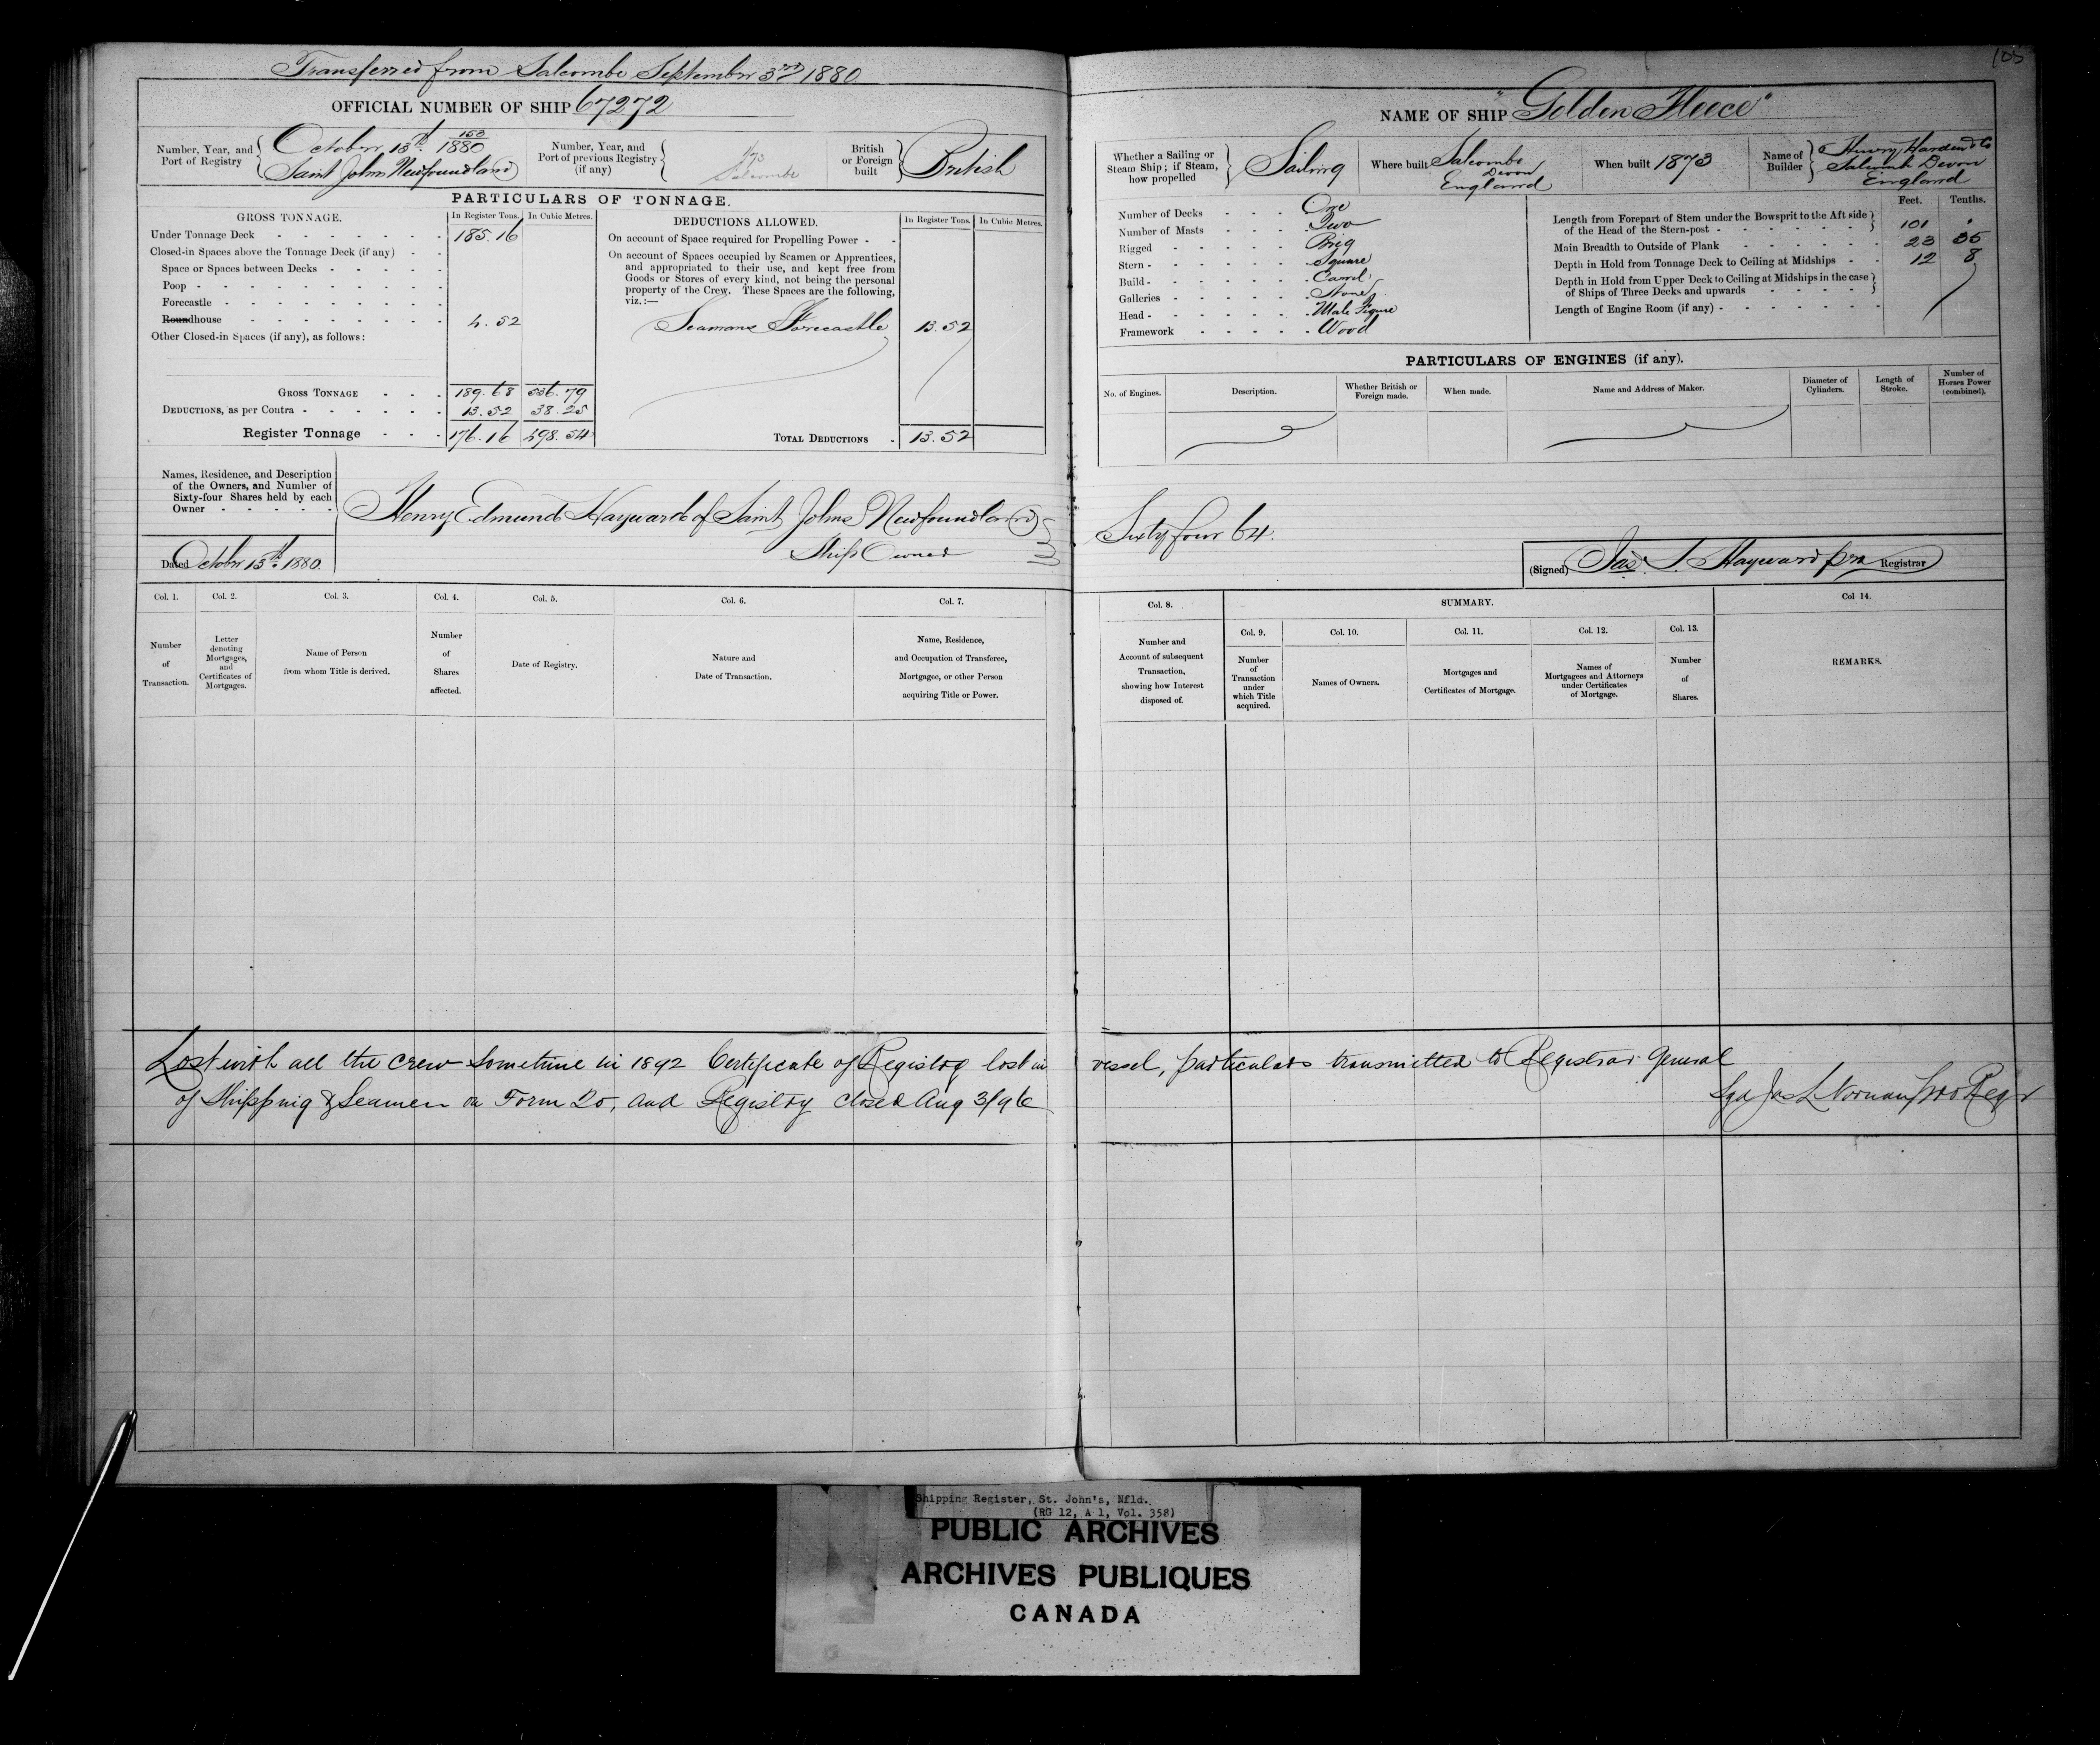 Transferred from Salcombe September 3rd 1880
OFFICIAL NUMBER OF SHIP 67272
Number, Year, and Port of Registry
October 13th 153/1880
Saint Johns Newfoundland
Number, Year, and Port of previous Registry (if any)
Salcombe
British or Foreign built
British
PARTICULARS OF TONNAGE.
GROSS TONNAGE. In Register Tons. In Cubic Metres.
Under Tonnage Deck 185.16
Closed-in Spaces above the Tonnage Deck (if any)
Space or Spaces between Decks
Poop
Forecastle
Roundhouse 4.52
Other Closed-in Spaces (if any), as follows:
GROSS TONNAGE 189.68 536.79
DEDUCTIONS, as per Contra 13.52 38.25
Register Tonnage 176.16 498.54
DEDUCTIONS ALLOWED. In Register Tons. In Cubic Metres.
On account of Space required for Propelling Power
On account of Spaces occupied by Seamen or Apprentices,
and appropriated to their use, and kept free from
Goods or Stores of every kind, not being the personal
property of the Crew. These Spaces are the following,
viz.:—
Seamans Forecastle 13.52
TOTAL DEDUCTIONS 13.52
Names, Residence, and Description
of the Owners, and Number of
Sixty-four Shares held by each
Owner
Henry Edmund Hayward of Saint Johns Newfoundland
Ship Owner
Dated October 13th 1880.
Col. 1. Col. 2. Col. 3. Col. 4. Col. 5. Col. 6. Col. 7.
Number of Transaction.
Letter denoting Mortgages, and Certificates of Mortgages.
Name of Person from whom Title is derived.
Number of Shares affected.
Date of Registry.
Nature and Date of Transaction.
Name, Residence, and Occupation of Transferee, Mortgagee, or other Person acquiring Title or Power.
105
NAME OF SHIP "Golden Fleece"
Whether a Sailing or Steam Ship; if Steam, how propelled
Sailing
Where built Salcombe Devon England
When built 1873
Name of Builder
Salcomb Devon
England
Number of Decks One
Number of Masts Two
Rigged Brig
Stern Square
Build Carvel
Galleries None
Head Male Figure
Framework Wood
Feet. Tenths.
Length from Forepart of Stem under the Bowsprit to the Aft side
of the Head of the Stern-post 101
Main Breadth to Outside of Plank 23 35
Depth in Hold from Tonnage Deck to Ceiling at Midships 12 8
Depth in Hold from Upper Deck to Ceiling at Midships in the case
of Ships of Three Decks and upwards
Length of Engine Room (if any)
PARTICULARS OF ENGINES (if any).
No. of Engines. Description. Whether British or Foreign made. When made. Name and Address of Maker. Diameter of Cylinders. Length of Stroke. Number of Horses Power (combined).
Sixty four 64.
(Signed) Jas. S. Hayward pro Registrar
Col. 8. SUMMARY. Col 14.
Col. 9. Col. 10. Col. 11. Col. 12. Col. 13.
Number and Account of subsequent Transaction, showing how Interest disposed of.
Number of Transaction under which Title acquired.
Names of Owners.
Mortgages and Certificates of Mortgage.
Names of Mortgagees and Attorneys under Certificates of Mortgage.
Number of Shares.
REMARKS.
Lost with all the crew sometime in 1892 Certificate of Registry lost in vessel, particulars transmitted to Registrar General
of Shipping & Seamen on Form 20, and Registry closed Aug 3/96
Sgd Jas L Noonan pro Regr
Shipping Register, St. John's, Nfld.
(RG 12, A 1, Vol. 358)
PUBLIC ARCHIVES
ARCHIVES PUBLIQUES
CANADA